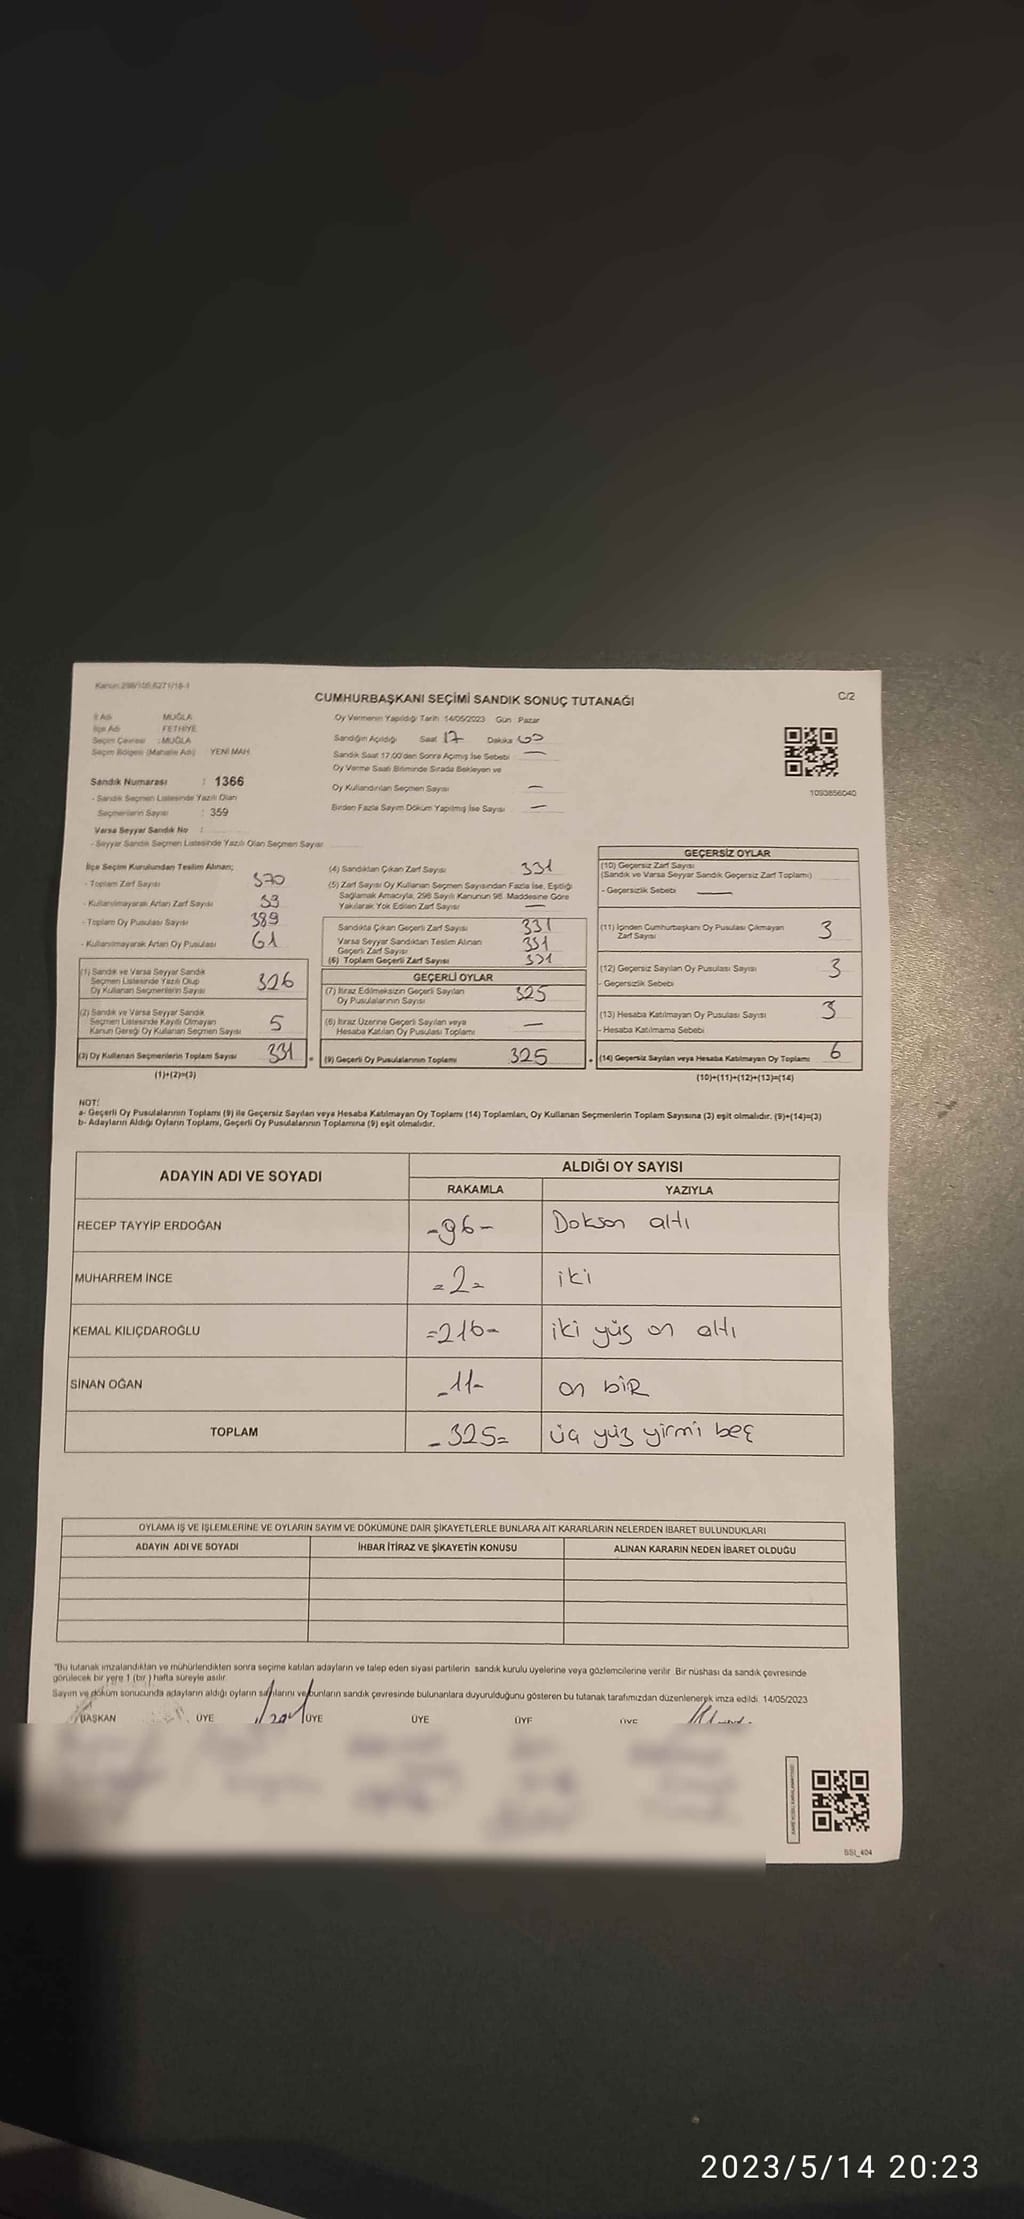 Kanun:298/105,6271/18-1
C/2
CUMHURBAŞKANI SEÇİMİ SANDIK SONUÇ TUTANAĞI
İl Adı MUĞLA
İlçe Adı FETHİYE
Seçim Çevresi : MUĞLA
Seçim Bölgesi (Mahalle Adı) YENİ MAH.
Sandık Numarası : 1366
- Sandık Seçmen Listesinde Yazılı Olan
Seçmenlerin Sayısı : 359
Varsa Seyyar Sandık No :
- Seyyar Sandık Seçmen Listesinde Yazılı Olan Seçmen Sayısı
Oy Vermenin Yapıldığı Tarih 14/05/2023 Gün : Pazar
Sandığın Açıldığı Saat 17 Dakika
Sandık Saat 17.00'den Sonra Açımış İse Sebebi —
Oy Verme Saati Bitiminde Sırada Bekleyen ve
Oy Kullandırılan Seçmen Sayısı —
Birden Fazla Sayım Döküm Yapılmış İse Sayısı —
1093856040
İlçe Seçim Kurulundan Teslim Alınan;
- Toplam Zarf Sayısı 370
- Kullanılmayarak Artan Zarf Sayısı
- Toplam Oy Pusulası Sayısı 389
- Kullanılmayarak Artan Oy Pusulası 61
(1) Sandık ve Varsa Seyyar Sandık
Seçmen Listesinde Yazılı Olup
Oy Kullanan Seçmenlerin Sayısı 326
(2) Sandık ve Varsa Seyyar Sandık
Seçmen Listesinde Kayıtlı Olmayan
Kanun Gereği Oy Kullanan Seçmen Sayısı 5
(3) Oy Kullanan Seçmenlerin Toplam Sayısı 331
(1)+(2)=(3)
(4) Sandıktan Çıkan Zarf Sayısı 331
(5) Zarf Sayısı Oy Kullanan Seçmen Sayısından Fazla İse, Eşitliği
Sağlamak Amacıyla, 298 Sayılı Kanunun 98. Maddesine Göre
Yakılarak Yok Edilen Zarf Sayısı —
Sandıkta Çıkan Geçerli Zarf Sayısı 331
Varsa Seyyar Sandıktan Teslim Alınan
Geçerli Zarf Sayısı 331
(6) Toplam Geçerli Zarf Sayısı 331
GEÇERLİ OYLAR
(7) İtiraz Edilmeksizin Geçerli Sayılan
Oy Pusulalarının Sayısı 325
(8) İtiraz Üzerine Geçerli Sayılan veya
Hesaba Katılan Oy Pusulası Toplamı —
(9) Geçerli Oy Pusulalarının Toplamı 325
GEÇERSİZ OYLAR
(10) Geçersiz Zarf Sayısı
(Sandık ve Varsa Seyyar Sandık Geçersiz Zarf Toplamı)
- Geçersizlik Sebebi —
(11) İçinden Cumhurbaşkanı Oy Pusulası Çıkmayan
Zarf Sayısı 3
(12) Geçersiz Sayılan Oy Pusulası Sayısı 3
- Geçersizlik Sebebi
(13) Hesaba Katılmayan Oy Pusulası Sayısı 3
- Hesaba Katılmama Sebebi
(14) Geçersiz Sayılan veya Hesaba Katılmayan Oy Toplamı 6
(10)+(11)+(12)+(13)=(14)
NOT:
a- Geçerli Oy Pusulalarının Toplamı (9) ile Geçersiz Sayılan veya Hesaba Katılmayan Oy Toplamı (14) Toplamları, Oy Kullanan Seçmenlerin Toplam Sayısına (3) eşit olmalıdır. (9)+(14)=(3)
b- Adayların Aldığı Oyların Toplamı, Geçerli Oy Pusulalarının Toplamına (9) eşit olmalıdır.
ADAYIN ADI VE SOYADI
ALDIĞI OY SAYISI
RAKAMLA YAZIYLA
RECEP TAYYİP ERDOĞAN -96- Doksan altı
MUHARREM İNCE =2= iki
KEMAL KILIÇDAROĞLU =216- iki yüz on altı
SİNAN OĞAN -11- on biR
TOPLAM -325= üç yüz yirmi beş
OYLAMA İŞ VE İŞLEMLERİNE VE OYLARIN SAYIM VE DÖKÜMÜNE DAİR ŞİKAYETLERLE BUNLARA AİT KARARLARIN NELERDEN İBARET BULUNDUKLARI
ADAYIN ADI VE SOYADI İHBAR İTİRAZ VE ŞİKAYETİN KONUSU ALINAN KARARIN NEDEN İBARET OLDUĞU
"Bu tutanak imzalandıktan ve mühürlendikten sonra seçime katılan adayların ve talep eden siyasi partilerin sandık kurulu üyelerine veya gözlemcilerine verilir. Bir nüshası da sandık çevresinde
görülecek bir yere 1 (bir ) hafta süreyle asılır.
Sayım ve döküm sonucunda adayların aldığı oyların sayılarını ve bunların sandık çevresinde bulunanlara duyurulduğunu gösteren bu tutanak tarafımızdan düzenlenerek imza edildi. 14/05/2023
BAŞKAN ÜYE ÜYE ÜYE ÜYE ÜYE
SSI_404
2023/5/14 20:23